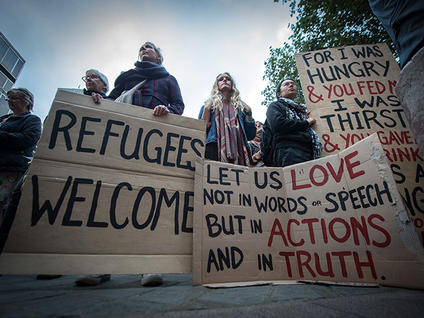 REFUGEES
WELCOME
LET US LOVE
NOT IN WORDS OR SPEECH,
BUT IN ACTIONS
AND IN TRUTH.
FOR I WAS
HUNGRY
& YOU FED M
I WAS
THIRST
& YOU GAVE